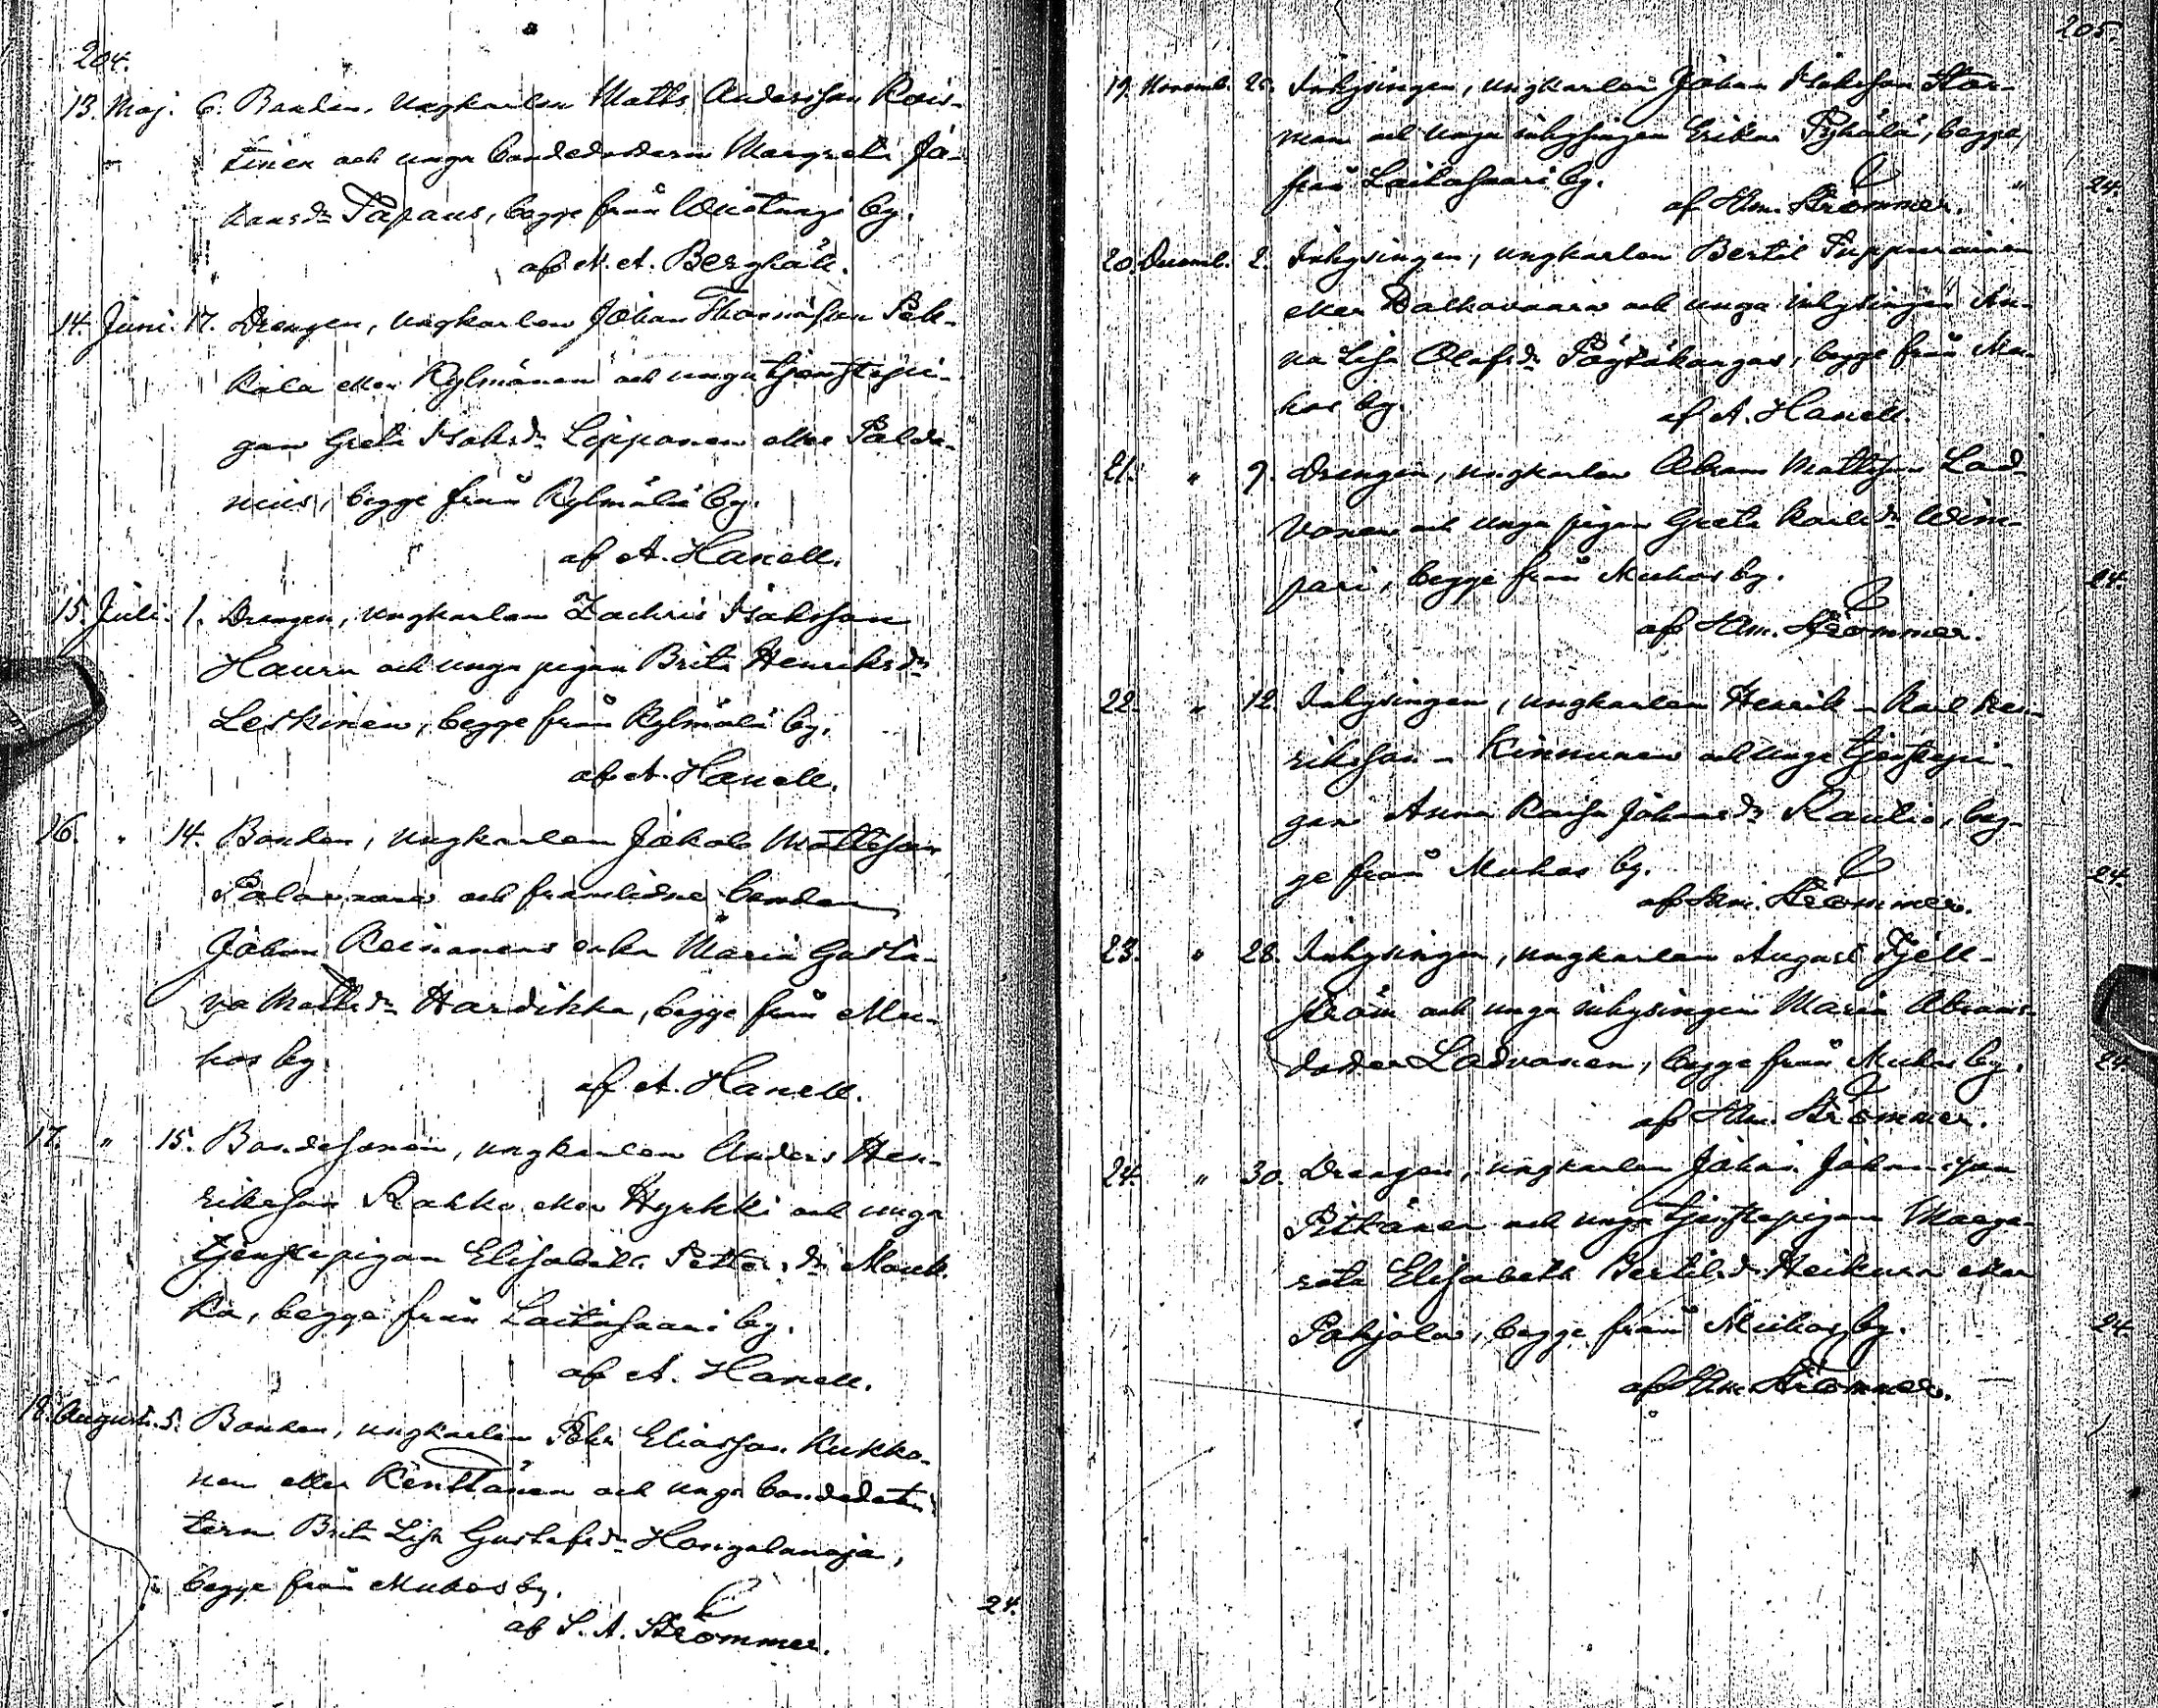 204.
13. Maj. 6. Bonden, Ungkarlen Matts Andersson Rois-
tinen och unga bondedottern Margreta Jo-
hansdr Papaus, begge från by.
af A. A. Berghäll.
14. Juni. 17. Drengen, Ungkarlen Johan Thomasson Pek-
kala eller Kylmänen och unga tjenstepi-
gan Greta Isaksdr Lepponen eller Palda-
nius, begge från Kylmälä by.
af A. Hanell.
15. Juli. 1. Drengen, Ungkarlen Zachris Isaksson
Hauru och unga pigan Brita Henriksdr
Leskinen, begge från Kylmälä by.
af A. Hanell.
16. " 14. Bonden, Ungkarlen Jakob Mattsson
Palovaara och framlidne bonden
Johan Reinanens enka Maria Gusta-
va Mattsdr Hardikka, begge från Mu-
hos by.
af A. Hanell.
17. " 15. Bondesonen, ungkarlen Anders Hen-
riksson Rahko eller Hyrkki och unga
tjenstepigan Elisabeth Pettersdr Mouk-
ka, begge från Laitasaari by.
af A. Hanell.
18. Augusti. 5. Bonden, ungkarlen Pehr Eliasson Kukko-
nen eller Kenttänen och unga bondedot-
tern Brita Lisa Gustafsdr Hangalanaja,
begge från Muhos by.
24.
af S. A. Strömmer.
205.
19. Novemb. 25. Inhysingen, ungkarlen Johan Isaksson Stor-
man och unga inhysingen Erika Pyhälä, begge
från Laitasaari by.
af Hm. Strömmer. " 24.
20. Decemb. 2. Inhysingen, ungkarlen Bertil Tuppurainen
eller Valkovaara och unga inhysingen An-
na Lisa Olofsdr Pöytäkangas, begge från Mu-
hos by.
af A. Hanell.
21. " 9. Drengen, ungkarlen Abram Mattsson Lad-
vonen och unga pigan Greta Karlsdr Wim-
pari, begge från Muhos by.
24.
af Hm. Strömmer.
22. " 12. Inhysingen, ungkarlen Henrik - Karl Hen-
riksson - Kinnunen och unga tjenstepi-
gan Anna Kaisa Johansdr Rautio, beg-
ge från Muhos by.
24.
af Hm. Strömmer.
23. " 28. Inhysingen, ungkarlen August Fjell-
ström och unga inhysingen Maria Abrams-
dotter Ladvonen, begge från Muhos by.
24.
af Hm. Strömmer.
24. " 30. Drengen, ungkarlen Johan Johansson
Pitkänen och unga tjenstepigan Marga-
reta Elisabeth Bertilsdr Heikura eller
Pohjola, begge från Muhos by.
24.
af Hm. Strömmer.